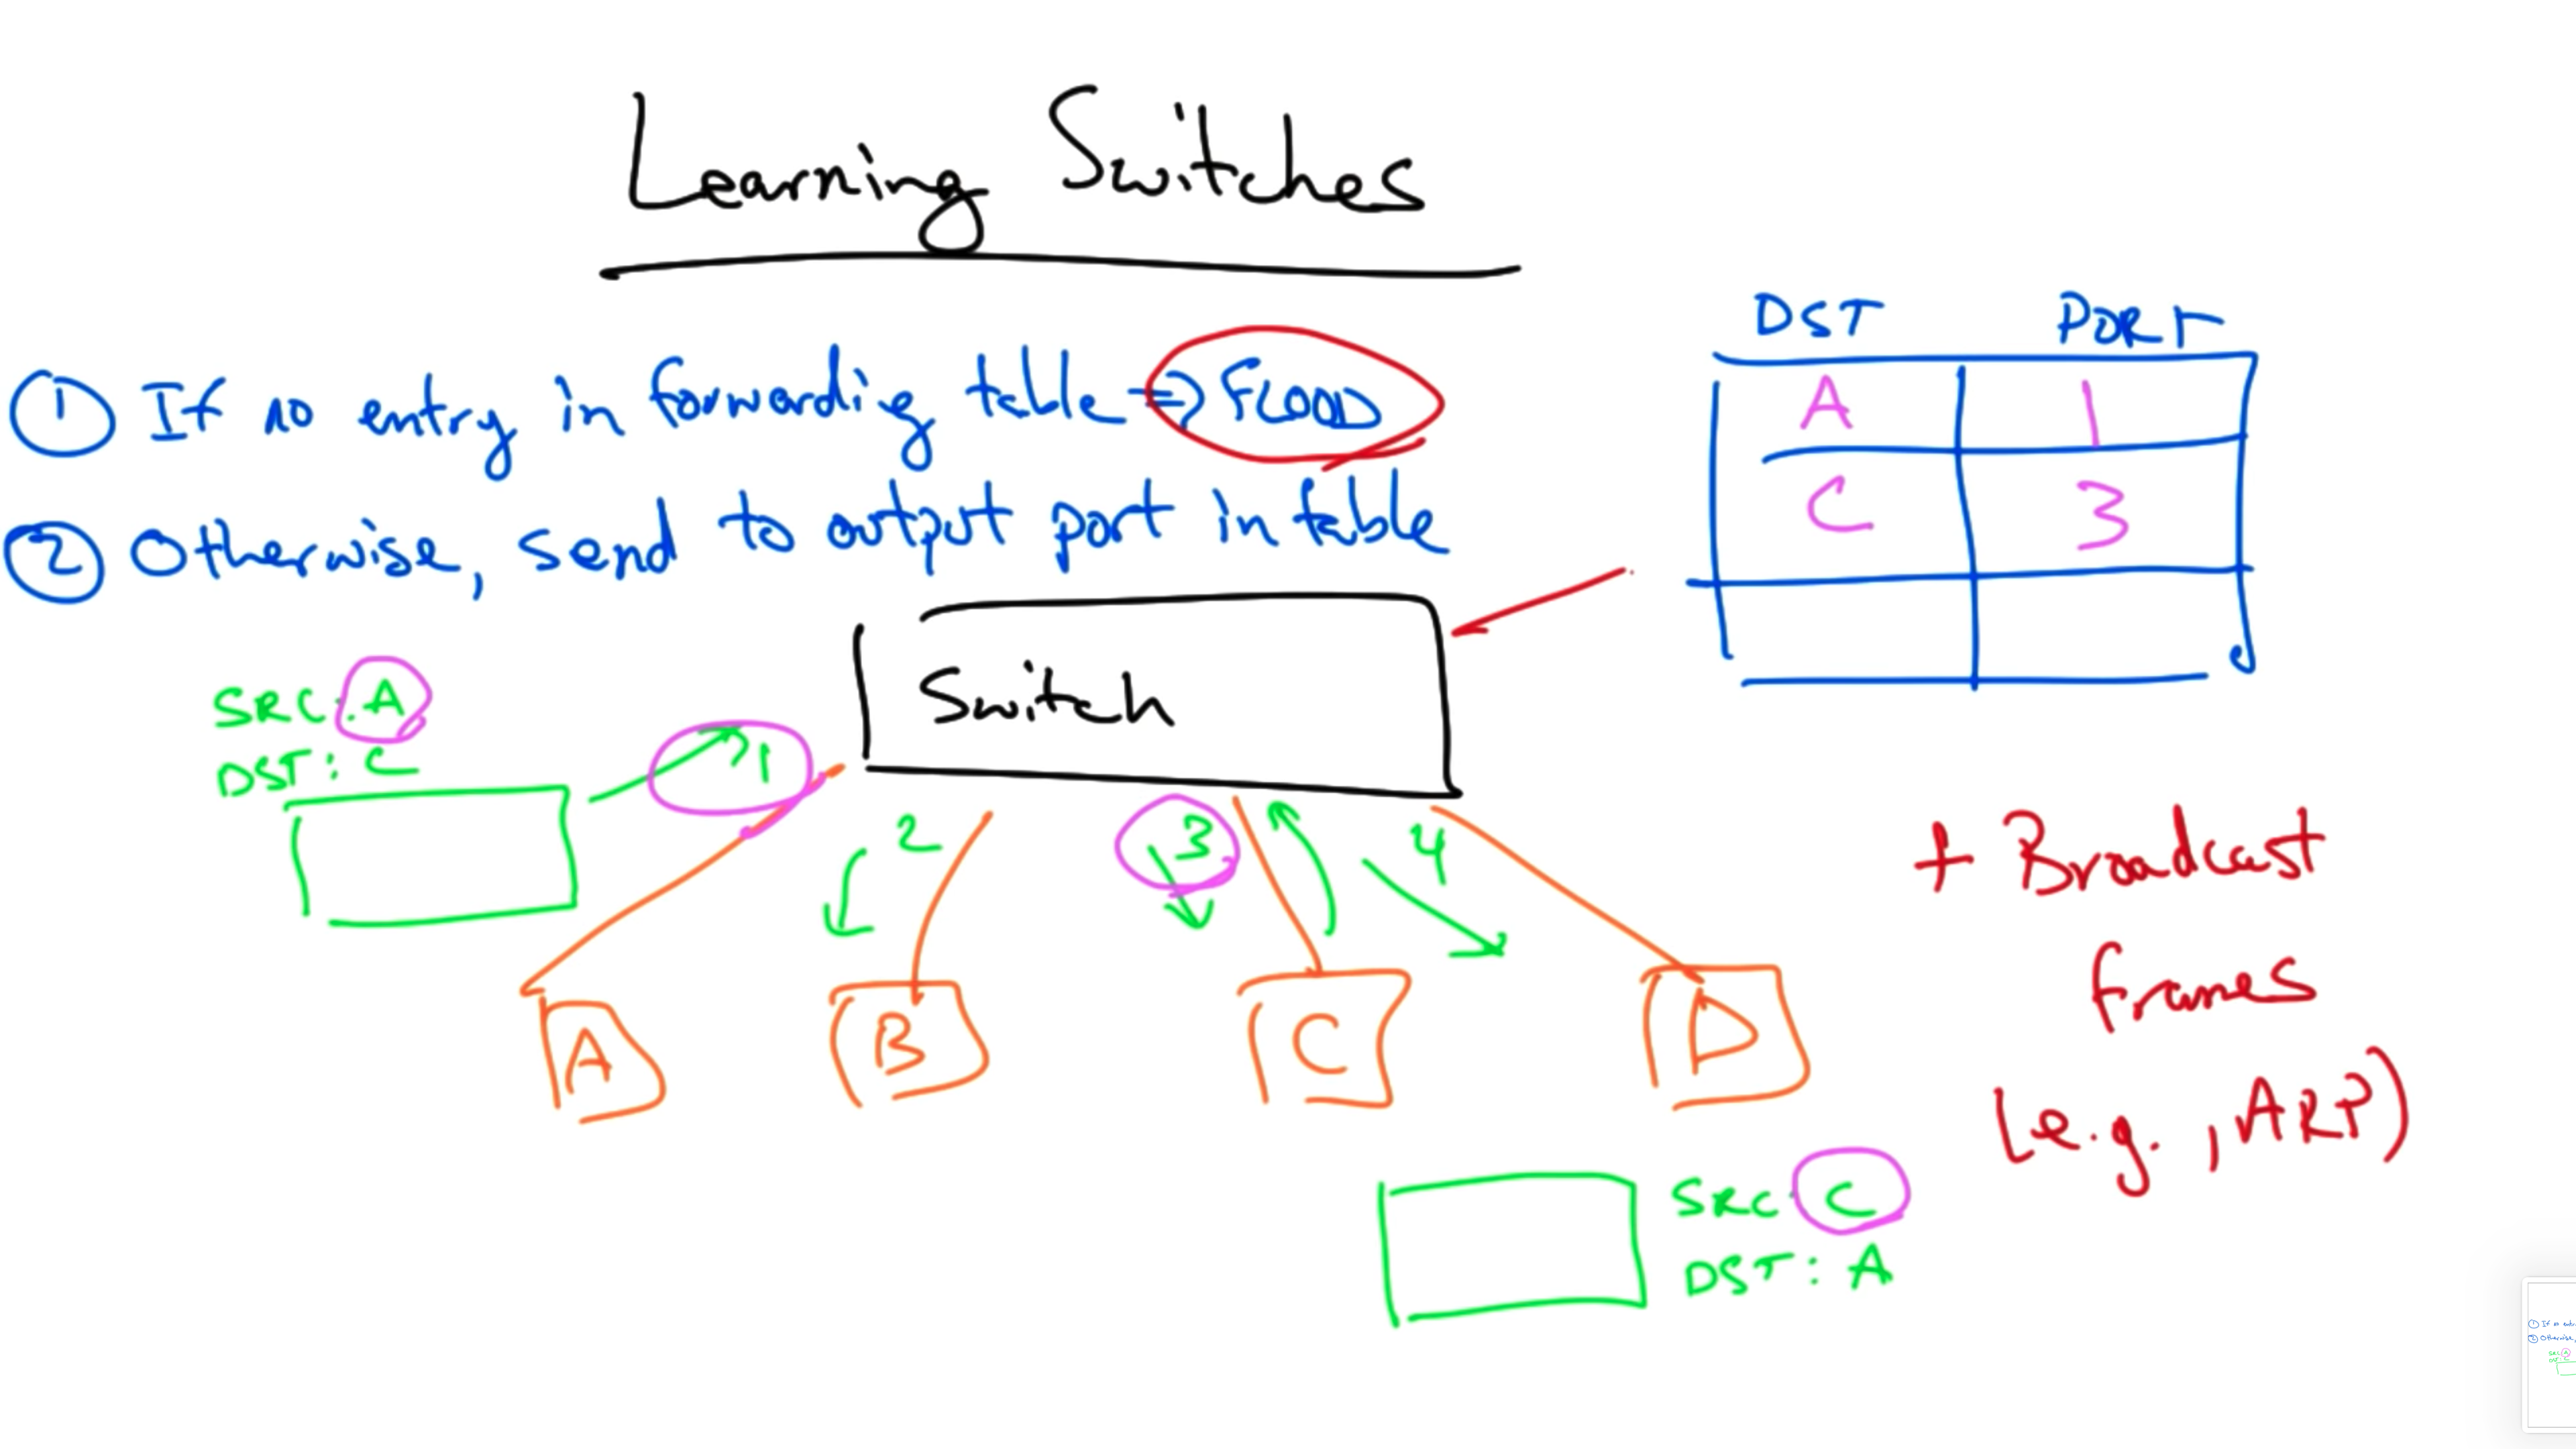 Learning Switches
① If no entry in forwarding table ⇒ FLOOD
② Otherwise, send to output port in table
DST PORT
A 1
C 3
Switch
SRC: A
DST: C
1
2
3
4
A
B
C
D
+ Broadcast
frames
(e.g., ARP)
SRC C
DST: A